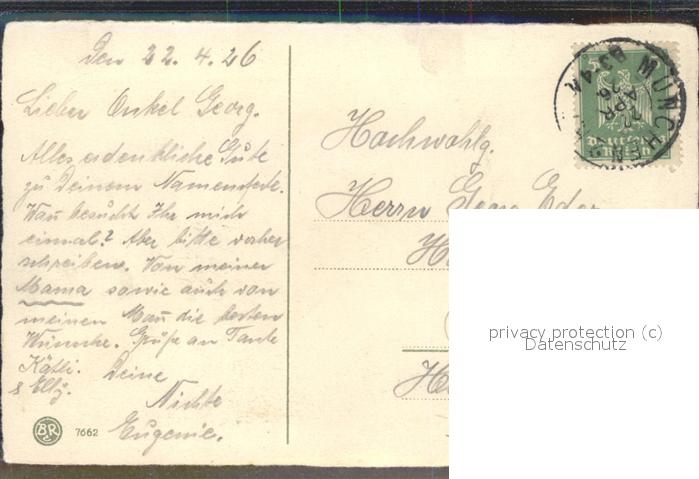 Den 22.4.26
Lieber Onkel Georg.
Alles erdenkliche Gute
zu Deinem Namensfeste.
Wan̄ besucht Ihr mich
einmal? Aber bitte vorher
schreiben. Von meiner
Mama sowie auch von
meinen Man̄ die besten
Wünsche. Grüße an Tante
Käthi.
& Elly. Deine
Nichte
Eugenie.
BR 7662
Hochwohlg.
Herrn Georg Eder
MÜNCHEN
22
APR
26
Deutsches
Reich
5
privacy protection (c)
Datenschutz